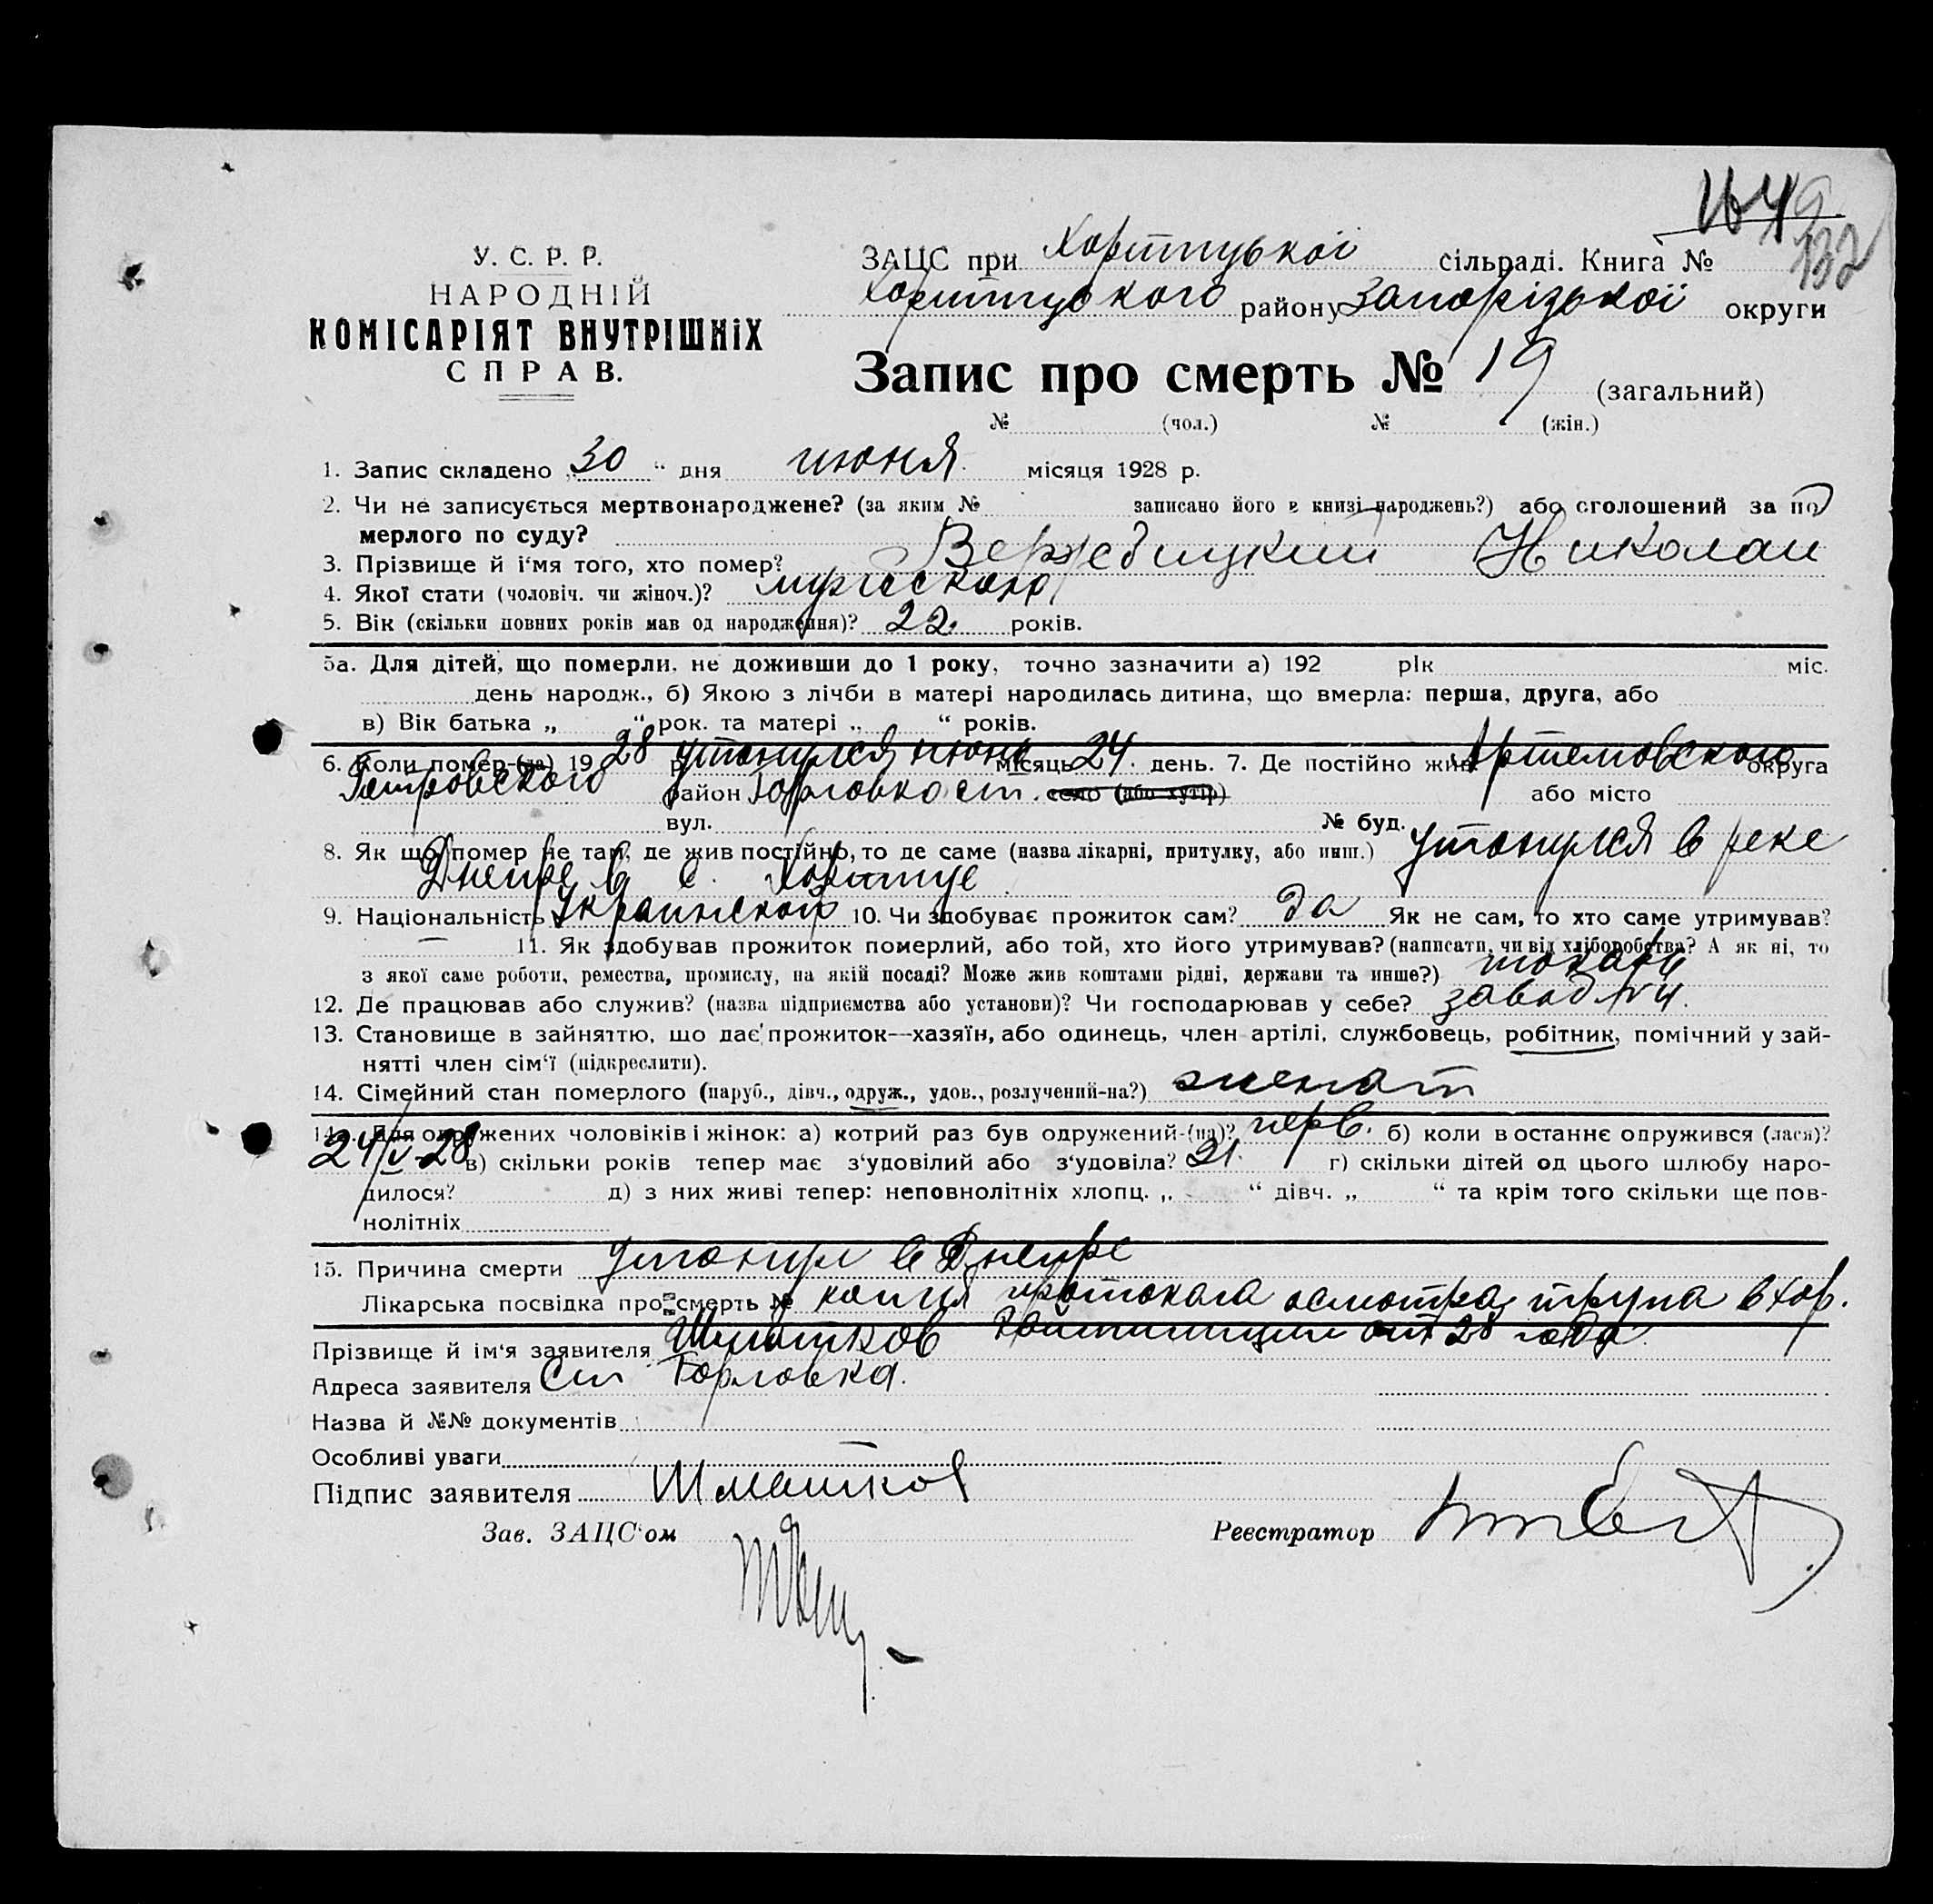 У. С. Р. Р.
НАРОДНІЙ
КОМІСАРІЯТ ВНУТРІШНІХ
СПРАВ.
132
ЗАЦС при Хортицької сільраді. Книга №
Хортицького району Запорізької округи
Запис про смерть № 19 (загальний)
№ (чол.) № (жін.)
1. Запис складено „30“ дня июня місяця 1928 р.
2. Чи не записується мертвонароджене? (за яким № записано його в книзі народжень?) або оголошений за по
мерлого по суду?
3. Прізвище й і'мя того, хто помер? Вержебицкий Николай
4. Якої стати (чоловіч. чи жіноч.)? мужского
5. Вік (скільки повних років мав од народження)? 22. років.
5а. Для дітей, що померли, не доживши до 1 року, точно зазначити а) 192 рік міс.
день народж., б) Якою з лічби в матері народилась дитина, що вмерла: перша, друга, або
в) Вік батька „ “ рок. та матері „ “ років.
6. Коли помер-(ла) 1928 р. утонулся июня місяць 24. день. 7. Де постійно жив Артемовского округа
Петровского район Горловка ст. село (або хутір) або місто
вул. № буд.
8. Як що помер не там, де жив постійно, то де саме (назва лікарні, притулку, або инш.) утонулся в реке
Днепре в с. Хортице
9. Національність Украинской 10. Чи здобуває прожиток сам? да Як не сам, то хто саме утримував?
— 11. Як здобував прожиток померлий, або той, хто його утримував? (написати, чи від хліборобства? А як ні, то
з якої саме роботи, ремества, промислу, на якій посаді? Може жив коштами рідні, держави та инше?) токарь
12. Де працював або служив? (назва підприємства або установи)? Чи господарював у себе? завод №4.
13. Становище в зайняттю, що дає прожиток—хазяїн, або одинець, член артілі, службовець, робітник, помічний у зай-
нятті член сім'ї (підкреслити).
14. Сімейний стан померлого (паруб., дівч., одруж., удов., розлучений-на?) женат
14а. Для одружених чоловіків і жінок: а) котрий раз був одружений-(на)? перв. б) коли востаннє одружився (лася)?
24/V-28 в) скільки років тепер має з'удовілий або з'удовіла? 21. г) скільки дітей од цього шлюбу наро-
дилося? д) з них живі тепер: неповнолітніх хлопц. „ “ дівч. „ “ та крім того скільки ще пов-
нолітніх
15. Причина смерти утонул в Днепре
Лікарська посвідка про смерть № копия протокола осмотра трупа в Хор.
от 28 года
Прізвище й ім'я заявителя
Адреса заявителя Ст Горловка.
Назва й №№ документів
Особливі уваги —
Підпис заявителя Шматков
Зав. ЗАЦС'ом Реєстратор